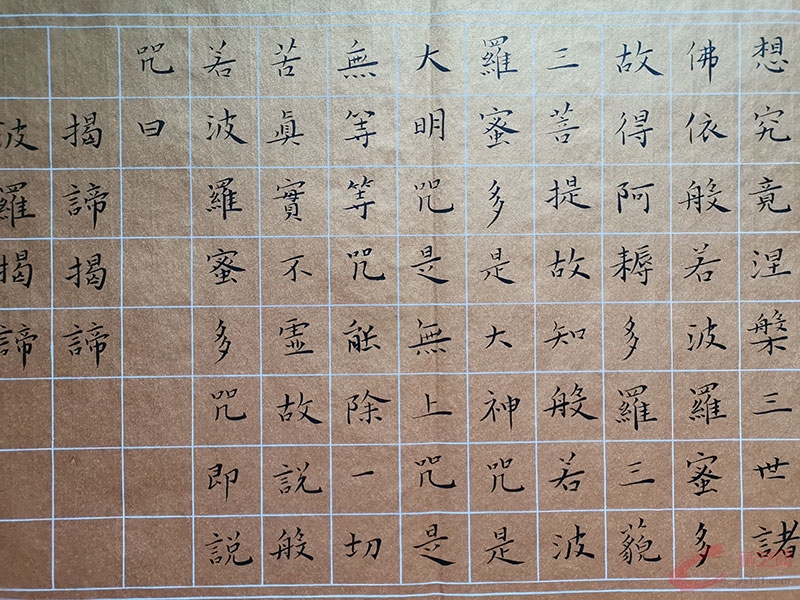 想究竟涅槃三世諸
佛依般若波羅蜜多
故得阿耨多羅三藐
三菩提故知般若波
羅蜜多是大神咒是
大明咒是無上咒是
無等等咒能除一切
苦眞實不虚故説般
若波羅蜜多咒即説
咒曰
揭諦揭諦
波羅揭諦